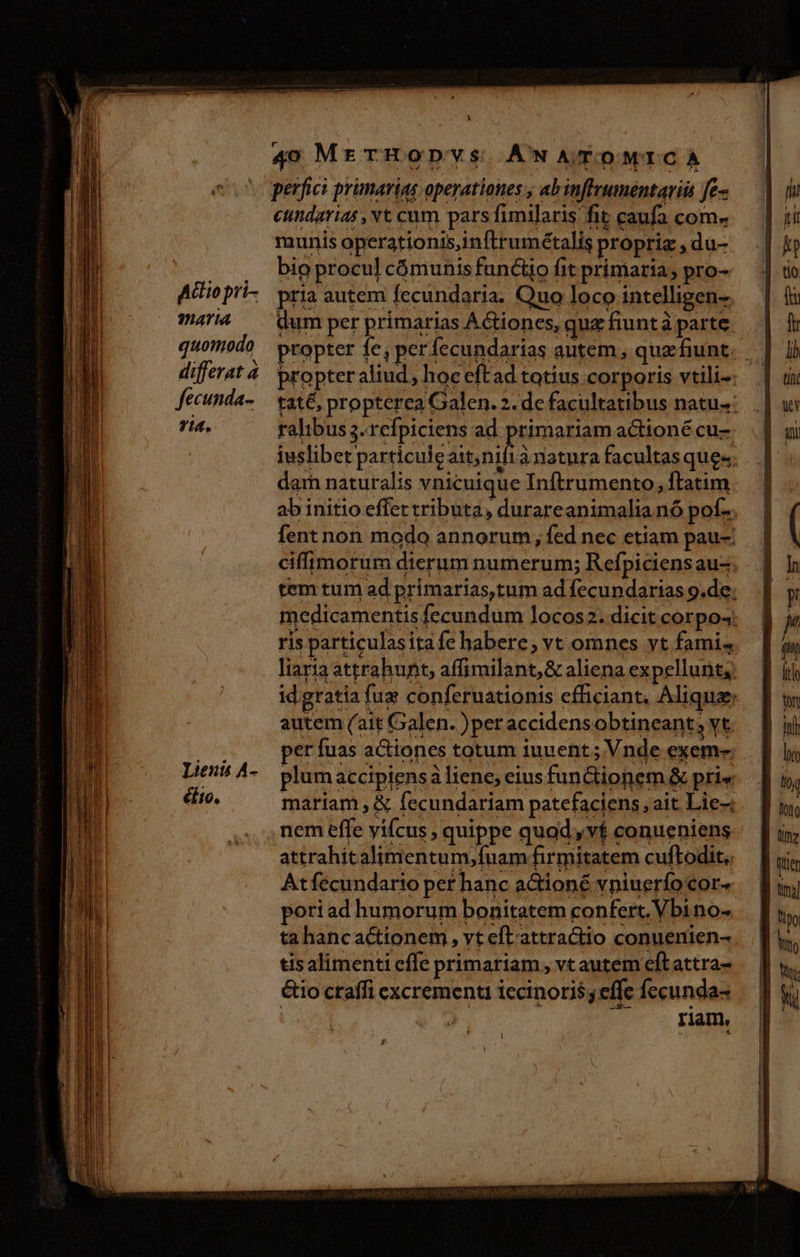 40 METHODVS ANATOMICA
perfici primarias operationes, ab inſtrumentariis ſe-
cundarias, vt cum pars ſimilaris fit cauſa com-
munis operationis, inſtrumētalis propriæ, du-
bio procul cōmunis functio fit primaria, pro-
pria autem ſecundaria. Quo loco intelligen-
dum per primarias Actiones, quæ fiunt à parte
propter ſe, per ſecundarias autem, quæ fiunt
propter aliud, hoc eſt ad totius corporis vtili-
taté, propterea Galen. 2. de facultatibus natu-
ralibus 3. reſpiciens ad primariam actioné cu-
iuslibet particule ait, niſi à natura facultas que-
dam naturalis vnicuique Inſtrumento, ſtatim
ab initio eſſet tributa, durare animalia nō poſ-
ſent non modo annorum, ſed nec etiam pau-
ciſſimorum dierum numerum; Reſpiciens au-
tem tum ad primarias, tum ad ſecundarias 9. de
medicamentis ſecundum locos 2. dicit corpo-
ris particulas ita ſe habere, vt omnes vt fami-
liaria attrahunt, aſſimilant, & aliena expellunt,
id gratia ſuæ conſeruationis efficiant. Aliquæ
autem (ait Galen.) per accidens obtineant, vt
per ſuas actiones totum iuuent; Vnde exem-
plum accipiens à liene, eius functionem & pri-
mariam, & ſecundariam patefaciens, ait Lie-
nem eſſe viſcus, quippe quod, vt conueniens
attrahit alimentum, ſuam firmitatem cuſtodit,
At ſecundario per hanc actioné vniuerſo cor-
pori ad humorum bonitatem confert. Vbi no-
ta hanc actionem, vt eſt attractio conuenien-
tis alimenti eſſe primariam, vt autem eſt attra-
ctio craſſi excrementi iecinoris, eſſe ſecunda-
riam,
Actio pri-
maria
quomodo
differat à
ſecunda-
ria.
Lienis A-
ctio.